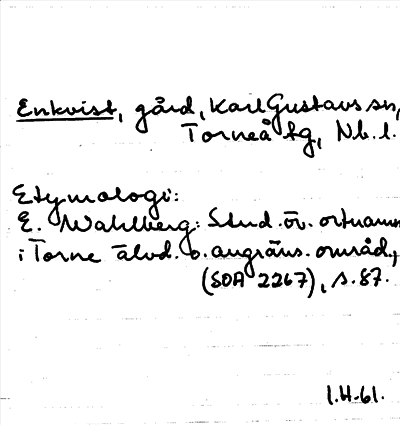 Enkvist, gård, Karl Gustavs sn,
Torneå tg, Nb.l.
Etymologi:
E. Wahlberg: Stud. öv. ortnamn
i Torne älvd. o. angräns. områd.,
(SOA 2267), s. 87.
I.H-61.